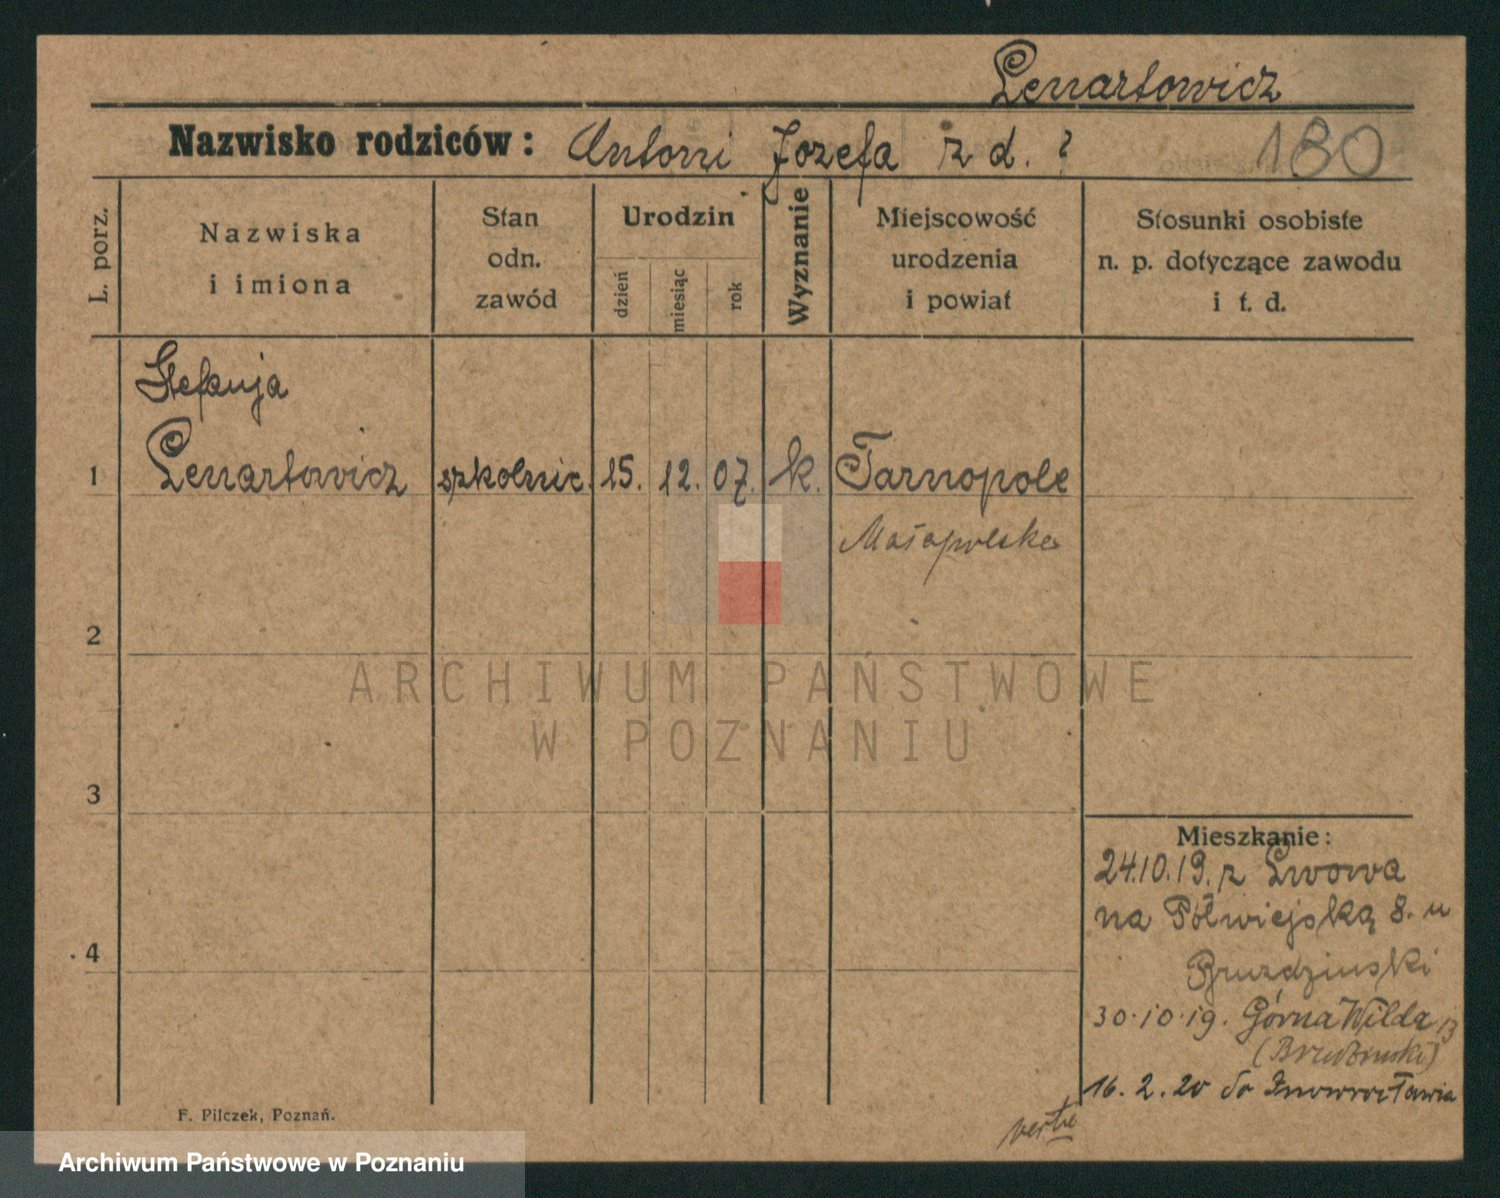 Lenartowicz
Nazwisko rodziców: Antoni Jozefa z d. ?
180
L. porz.
Nazwiska
i imiona
Stan
odn.
zawód
Urodzin
dzień
miesiąc
rok
Wyznanie
Miejscowość
urodzenia
i powiat
Stosunki osobiste
n. p. dotyczące zawodu
i t. d.
Stefanja
1 Lenartowicz szkolnic. 15. 12. 07. k. Tarnopole
Małopolska
2
ARCHIWUM PAŃSTWOWE
W POZNANIU
3
Mieszkanie:
24.10.19. z Lwowa
na Półwiejską 8. u
4
30.10.19. Górna Wilda 13
16. 2. 20 do Inowrocławia
F. Pilczek, Poznań.
verte
Archiwum Państwowe w Poznaniu